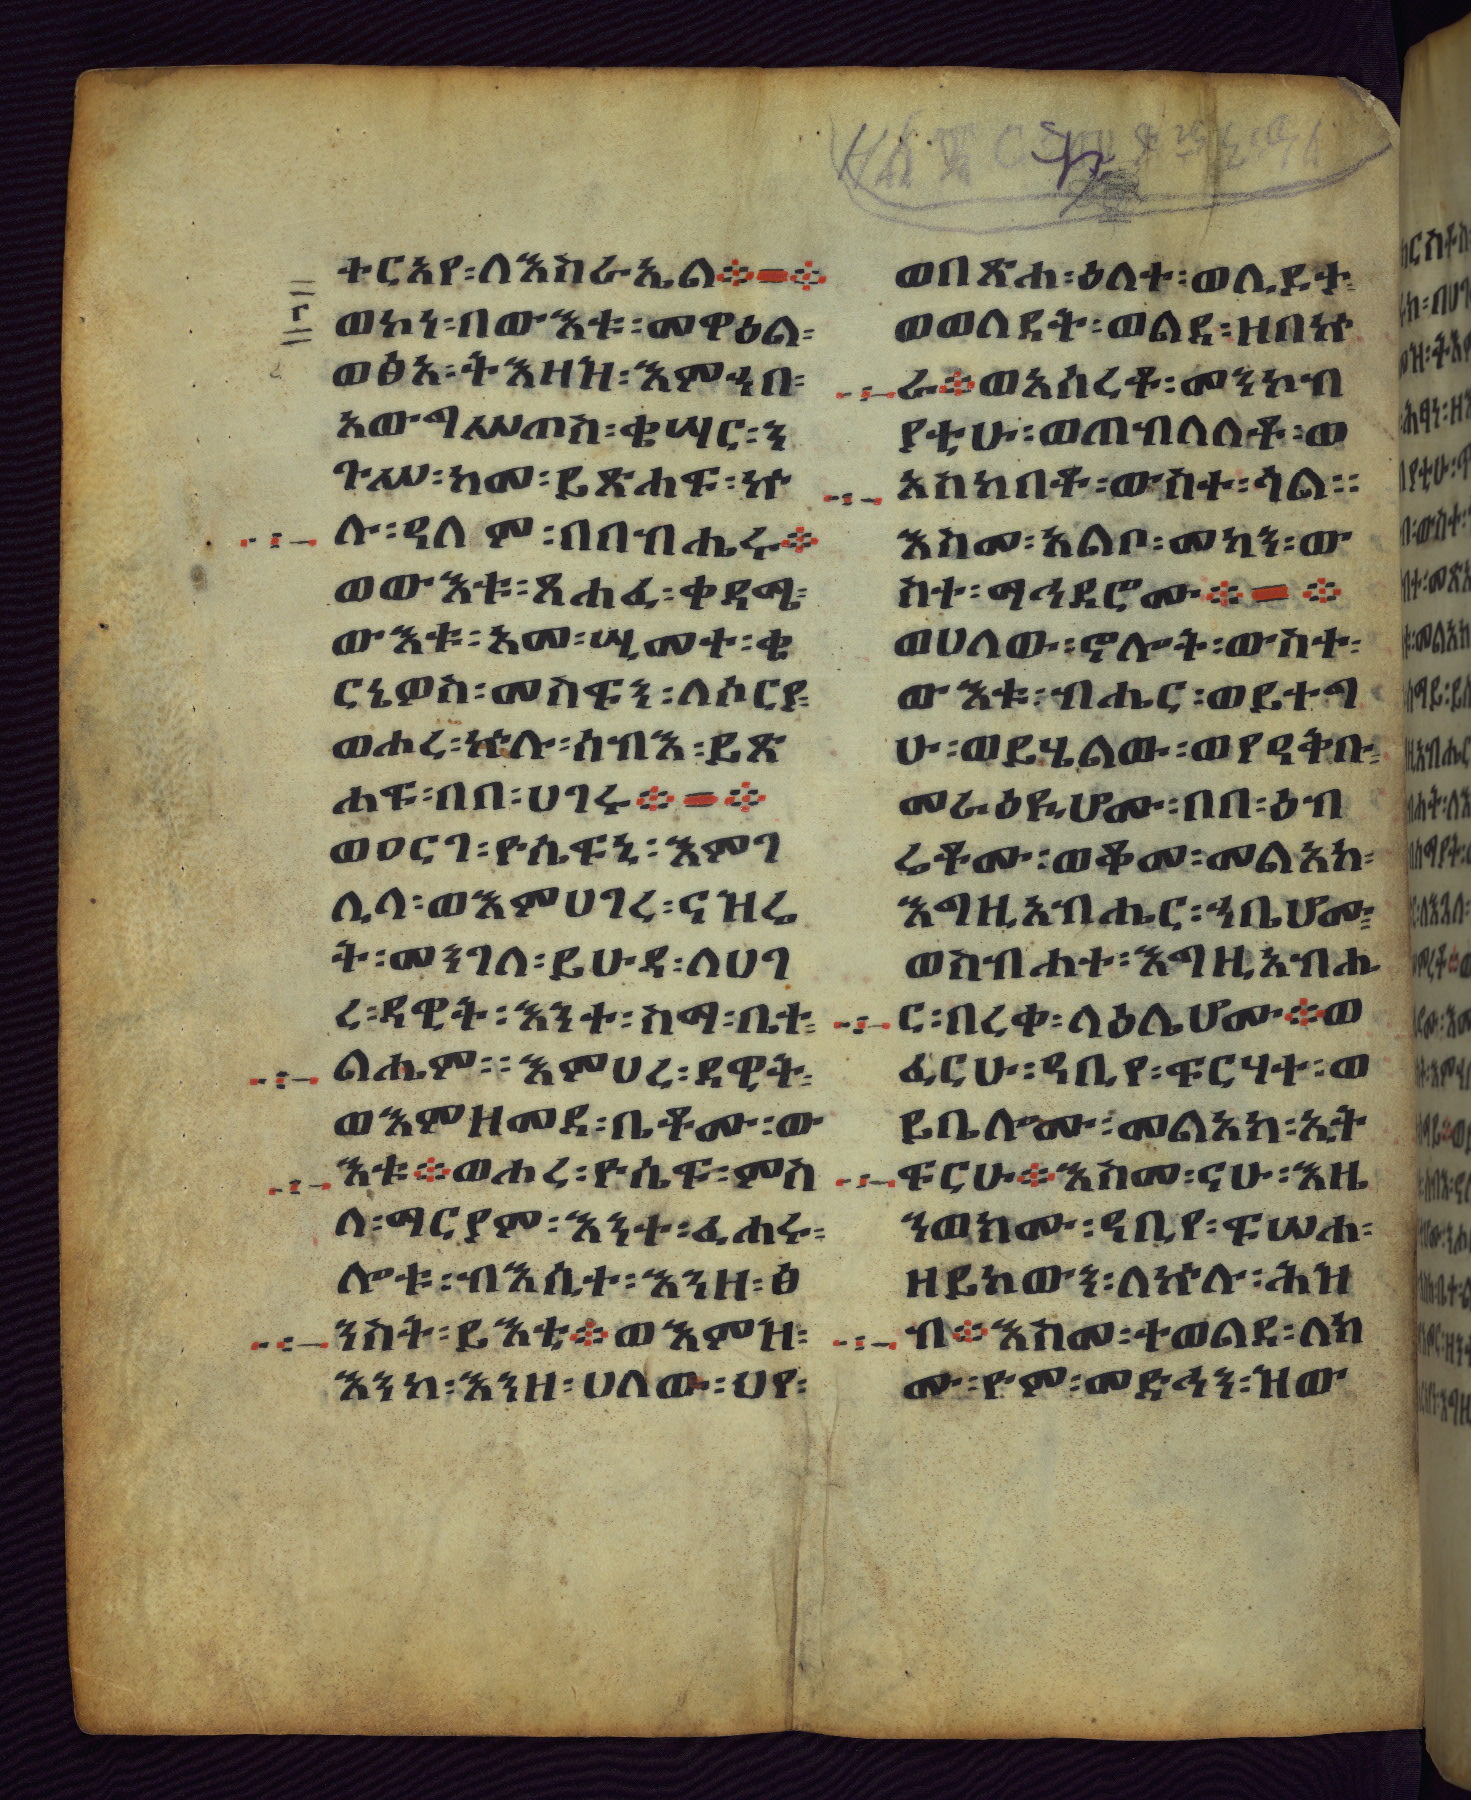 ትርአየ፡ለእስራኤል፨
ወኮነ፡በውእቱ፡መዋዕል፡
ወፅአ፡ትእዛዝ፡እምኀበ፡
አውግሡጦስ፡ቄሣር፡ን
ጉሠ፡ከመ፡ይጽሐፍ፡ኵ
ሉ፡ዓለም፡በበብሔሩ፨
ወውእቱ፡ጸሐፈ፡ቀዳሜ፡
ውእቱ፡አመ፡ሢመተ፡ቄ
ርኔዎስ፡መስፍን፡ለሶርያ፡
ወሖረ፡ኵሉ፡ሰብእ፡ይጽ
ሐፍ፡በበ፡ሀገሩ፨
ወዐርገ፡ዮሴፍኒ፡እምገ
ሊላ፡ወእምሀገረ፡ናዝሬ
ት፡መንገለ፡ይሁዳ፡ለሀገ
ረ፡ዳዊት፡እንተ፡ስማ፡ቤተ፡
ልሔም፡፡እምሀረ፡ዳዊት፡
ወእምዘመደ፡ቤቶሙ፡ው
እቱ፨ወሖረ፡ዮሴፍ፡ምስ
ለ፡ማርያም፡እንተ፡ፈሐሩ፡
ሎቱ፡ብእሲተ፡እንዘ፡ፅ
ንስት፡ይእቲ፨ወእምዝ፡
እንከ፡እንዘ፡ሀለው፡ህየ፡
ወበጽሐ፡ዕለተ፡ወሊዶታ፡
ወወለደት፡ወልደ፡ዘበኵ
ራ፨ወአሰረቶ፡መንኮብ
ያቲሁ፡ወጠብለለቶ፡ወ
አስከበቶ፡ውስተ፡ጎል፡፡
እስመ፡አልቦ፡መካን፡ው
ስተ፡ማኅደሮሙ፨
ወሀለው፡ኖሎት፡ውስተ፡
ውእቱ፡ብሔር፡ወይተግ
ሁ፡ወይሄልው፡ወየዓቅቡ፡
መራዕዪሆሙ፡በበ፡ዕብ
ሬቶሙ፡ወቆመ፡መልአከ፡
እግዚአብሔር፡ኀቤሆሙ፡
ወስብሐተ፡እግዚአብሔ
ር፡በረቀ፡ላዕሌሆሙ፨ወ
ፈርሁ፡ዓቢየ፡ፍርሃተ፡ወ
ይቤሎሙ፡መልአክ፡ኢት
ፍርሁ፨እስመ፡ናሁ፡እዜ
ንወክሙ፡ዓቢየ፡ፍሥሐ፡
ዘይከውን፡ለኵሉ፡ሕዝ
ብ፨እስመ፡ተወልደ፡ለክ
ሙ፡ዮም፡መድኅን፡ዝው